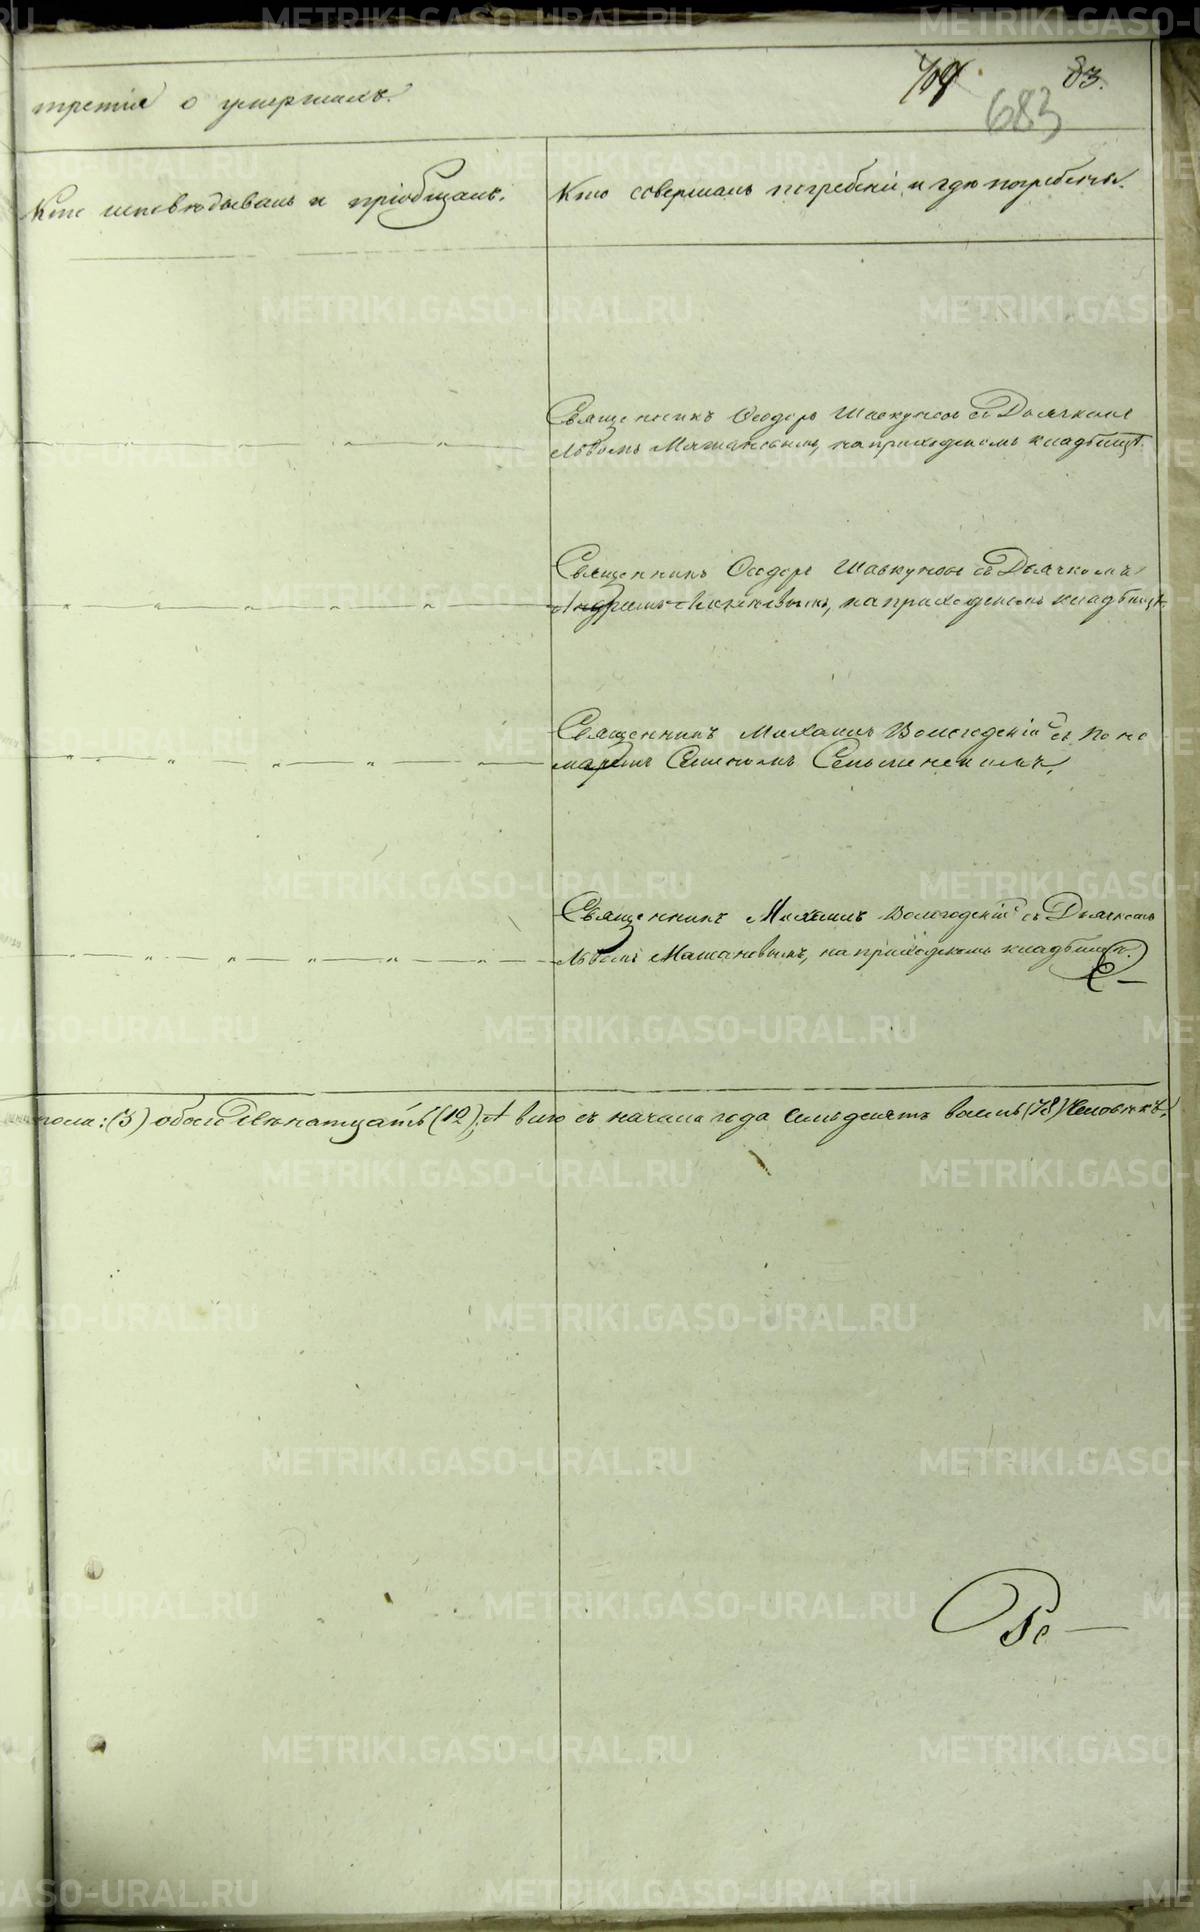 третія о умершихъ.
83.
683
Кто исповѣдывалъ и пріобщалъ.
Кто совершалъ погребеніе и гдѣ погребены.
Священникъ Ѳеодоръ Шавкуновъ съ Дьячкомъ
Львомъ на приходскомъ кладбищѣ.
Священникъ Ѳеодоръ Шавкуновъ съ Дьячкомъ
на приходскомъ кладбищѣ.
Священникъ Михаилъ Вологодскій съ Поно
маремъ Семеномъ
Священникъ Михаилъ Вологодскій съ Дьячкомъ
Львомъ Мамановымъ, на приходскомъ кладбищѣ.
пола: (3) обоего Двѣнатцать (12), А всего съ начала года Семьдесятъ восемь (78) Человѣкъ.
METRIKI.GASO-URAL.RU